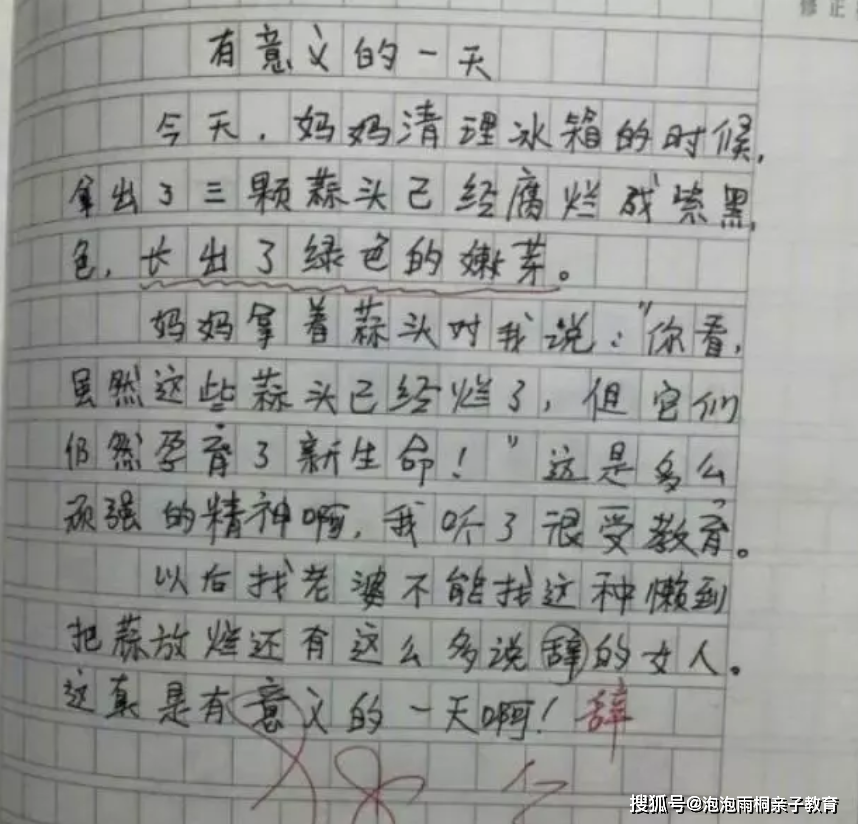 修正
有意义的一天
今天，妈妈清理冰箱的时候，
拿出了三颗蒜头已经腐烂成紫黑
色，长出了绿色的嫩芽。
妈妈拿着蒜头对我说：“你看，
虽然这些蒜头已经烂了，但它们
仍然孕育了新生命！”这是多么
顽强的精神啊，我听了很受教育。
以后找老婆不能找这种懒到
把蒜放烂还有这么多说辞的女人。
这真是有意义的一天啊！辞
搜狐号@泡泡雨桐亲子教育